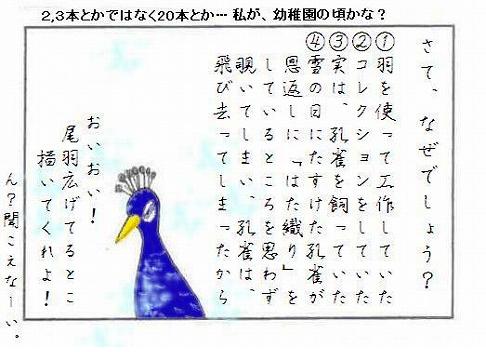 2,3本とかではなく20本とか… 私が、幼稚園の頃かな？
さて、なぜでしょう？
①羽を使って工作していた
②コレクションをしていた
③実は、孔雀を飼っていた
④雪の日にたすけた孔雀が
恩返しに「はた織り」を
しているところを思わず
覗いてしまい、孔雀は、
飛び去ってしまったから
おいおい！
尾羽広げてるとこ
描いてくれよ！
ん？聞こえなーい。